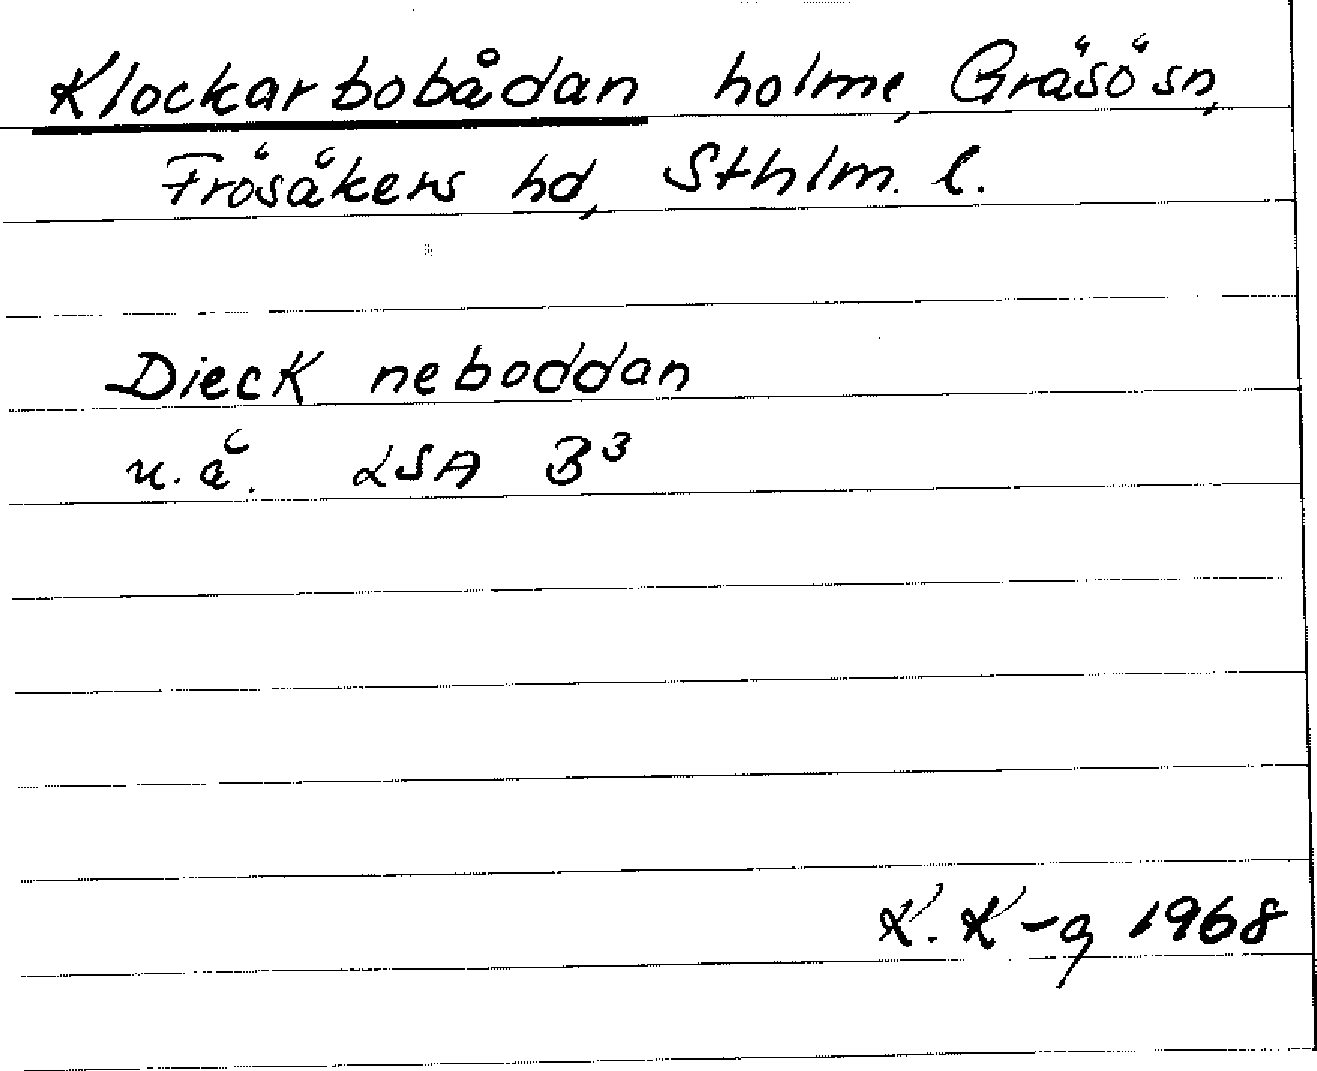 Klockarbobådan holme, Gräsö sn,
Frösåkers hd, Sthlm. l.
Dieck neboddan
u. å. LSA B3
K. K-g 1968